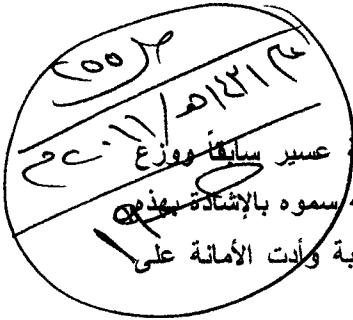 ص ٢٥٥
١٤٣١هـ / ٢٠١١م
عسير سابقاً ووزع
سموه بالإشادة بهذه
وأدت الأمانة على